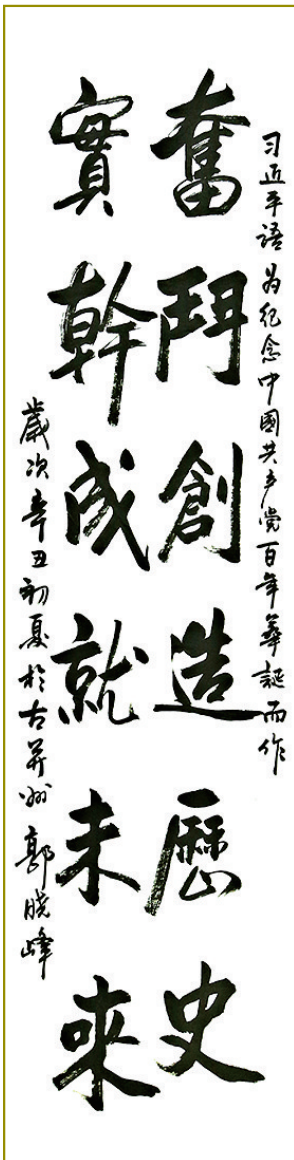 习近平語 为纪念中國共产党百年華誕而作
奮鬥創造歷史
實幹成就未來
歲次辛丑初夏於古并州 郭晓峰